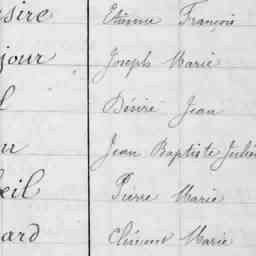 sire Etienne François
jour Joseph Marie
l Désiré Jean
u Jean Baptiste Julie
eil Pierre Marie
ard Clément Marie